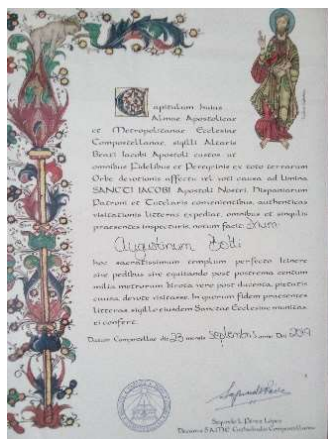 Capitulum huius
Almae Apostolicae
et Metropolitanae Ecclesiae
Compostellanae, sigilli Altaris
Beati Iacobi Apostoli custos, ut
omnibus Fidelibus et Peregrinis ex toto terrarum
Orbe, devotionis affectu vel voti causa, ad limina
SANCTI IACOBI, Apostoli Nostri, Hispaniarum
Patroni et Tutelaris convenientibus, authenticas
visitationis litteras expediat, omnibus et singulis
praesentes inspecturis, notum facit: Dnum
Augustinum
hoc sacratissimum templum, perfecto itinere
sive pedibus sive equitando post postrema centum
milia metrorum, birota vero post ducenta, pietatis
causa, devote visitasse. In quorum fidem praesentes
litteras, sigillo eiusdem Sanctae Ecclesiae munitas,
ei confert.
Datum Compostellae die 23 mensis Septembris anno Dni 2019
Segundo L. Pérez López
Decanus S.A.M.E. Cathedralis Compostellanae